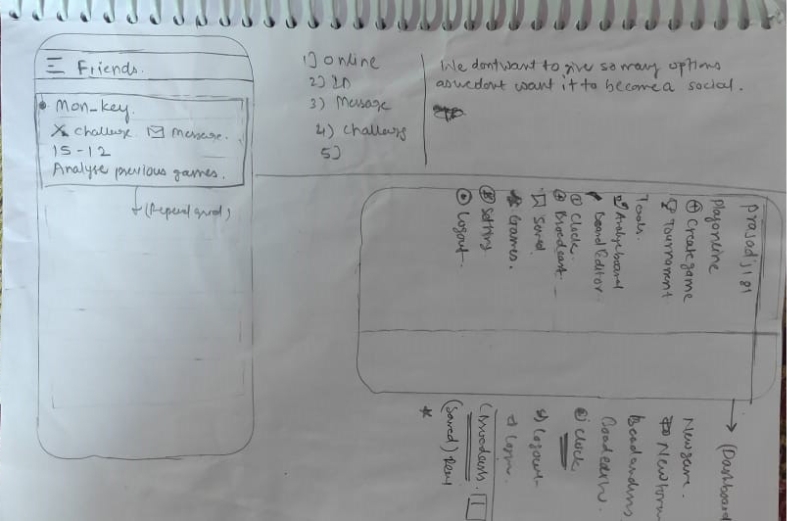 Friends.
Mon-key.
Challenge Message.
15-12
Analyse previous games.
1) Online
2)
3) Message
4) Challenge
5)
We dont want to give so many options
as we dont want it to become a social.
prasadj181
Playonline
Create game
Tournament
Tools.
Analyse board
Board Editor
Clock.
Broadcast
Saved
Games.
Setting
Logout.
(Dashboard
New game.
Clock
Logout
Login.
(Saved)